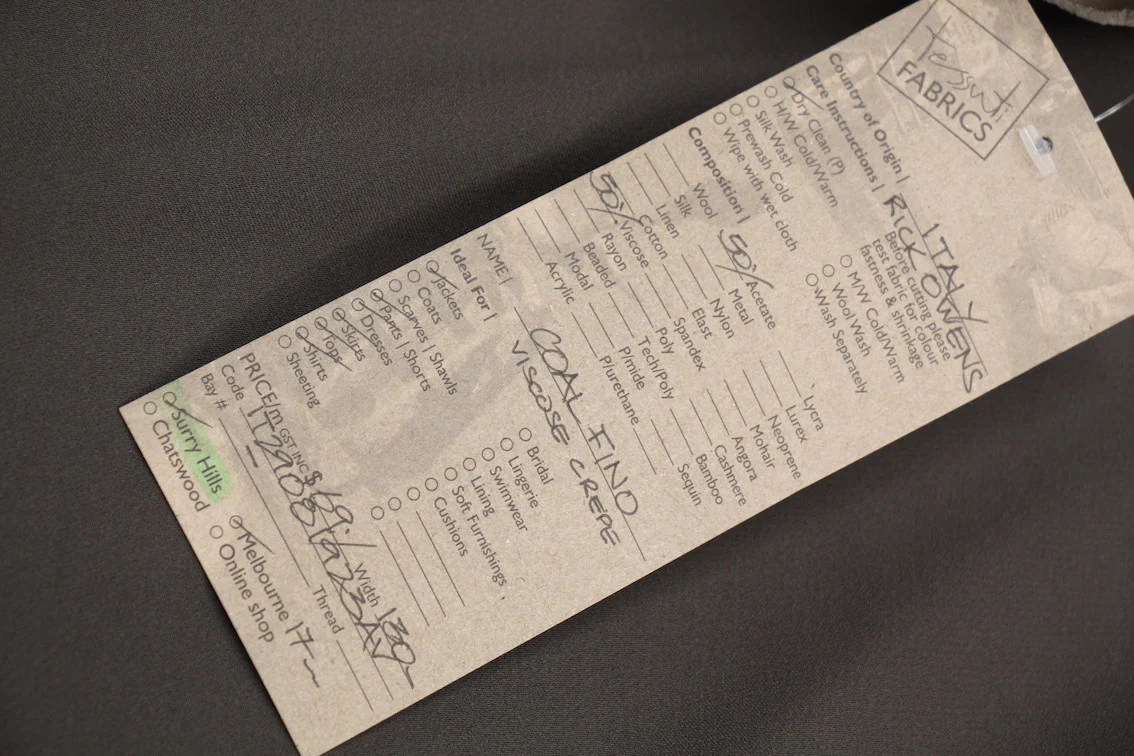 Tessuti
FABRICS
Country of Origin | ITALY
Care Instructions | RICK OWENS
Dry Clean (P)
H/W Cold/Warm
Silk Wash
Prewash Cold
Wipe with wet cloth
Before cutting please
test fabric for colour
fastness & shrinkage
M/W Cold/Warm
Wool Wash
Wash Separately
Composition |
Wool
Silk
Linen
Cotton
50% Viscose
Rayon
Beaded
Modal
Acrylic
50% Acetate
Metal
Nylon
Elast
Spandex
Poly
Tech/Poly
P/mide
P/urethane
Lycra
Lurex
Neoprene
Mohair
Angora
Cashmere
Bamboo
Sequin
NAME | COAL FINO
VISCOSE CREPE
Ideal For |
Jackets
Coats
Scarves | Shawls
Pants | Shorts
Dresses
Skirts
Tops
Shirts
Sheeting
Bridal
Lingerie
Swimwear
Lining
Soft Furnishings
Cushions
PRICE/m GST INC $69/ Width 130
Code
Bay #
Thread
Surry Hills
Chatswood
Melbourne 17m
Online shop